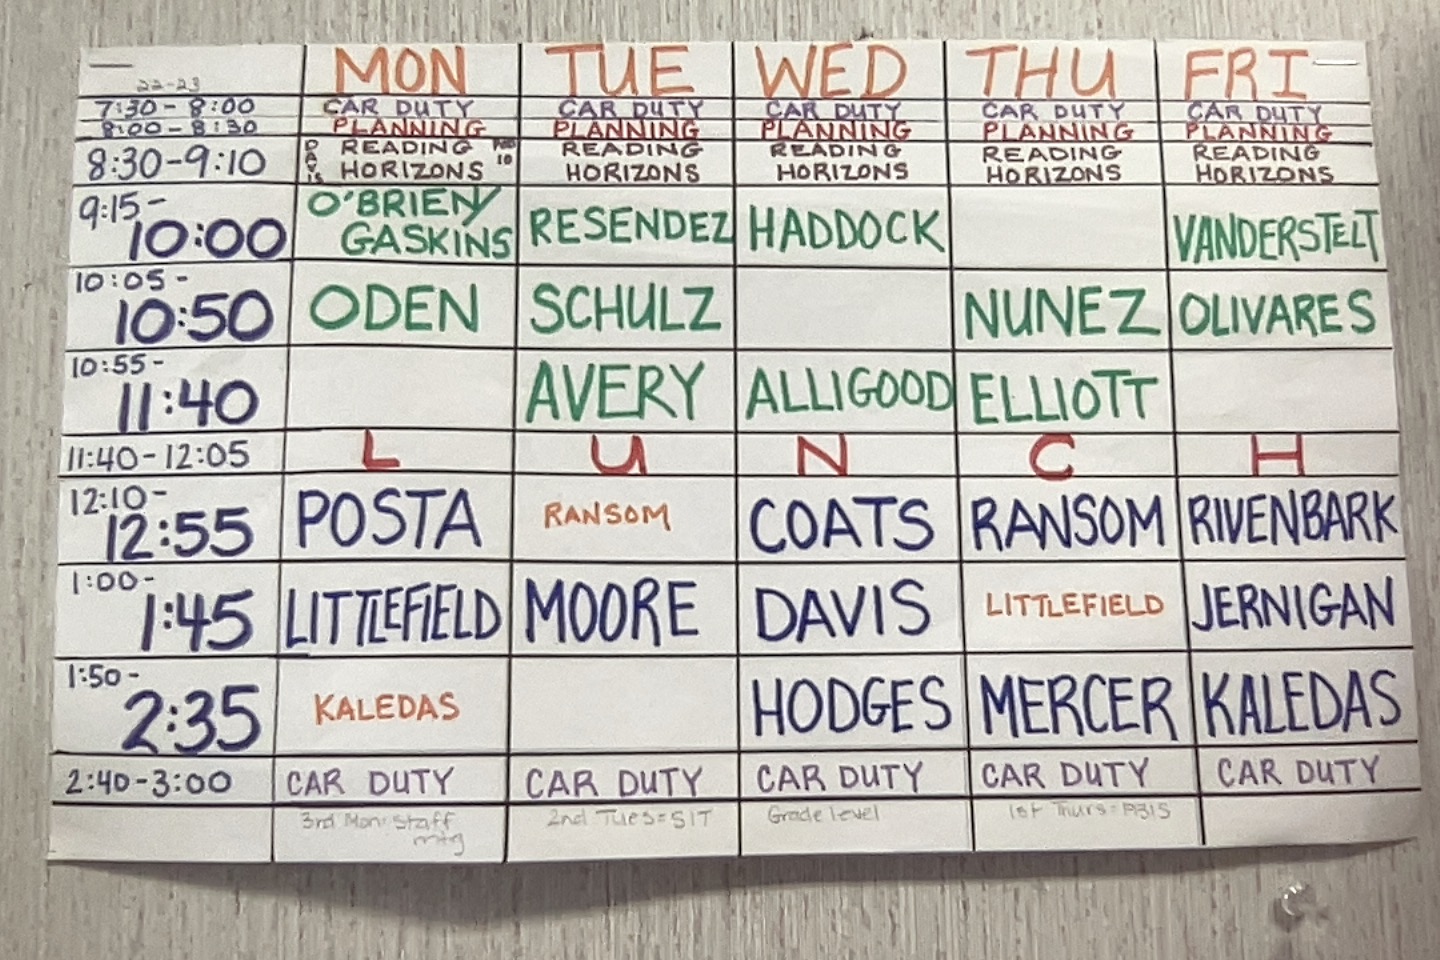 22-23 MON TUE WED THU FRI
7:30 - 8:00 CAR DUTY CAR DUTY CAR DUTY CAR DUTY CAR DUTY
8:00 - 8:30 PLANNING PLANNING PLANNING PLANNING PLANNING
8:30-9:10 DAVIS READING HORIZONS READING HORIZONS READING HORIZONS READING HORIZONS READING HORIZONS
9:15- 10:00 O'BRIEN/ GASKINS RESENDEZ HADDOCK VANDERSTELT
10:05 - 10:50 ODEN SCHULZ NUNEZ OLIVARES
10:55- 11:40 AVERY ALLIGOOD ELLIOTT
11:40-12:05 L U N C H
12:10- 12:55 POSTA RANSOM COATS RANSOM RIVENBARK
1:00- 1:45 LITTLEFIELD MOORE DAVIS LITTLEFIELD JERNIGAN
1:50- 2:35 KALEDAS HODGES MERCER KALEDAS
2:40-3:00 CAR DUTY CAR DUTY CAR DUTY CAR DUTY CAR DUTY
3rd Mon: Staff mtg 2nd Tues=SIT Grade level 1st Thurs=PBIS